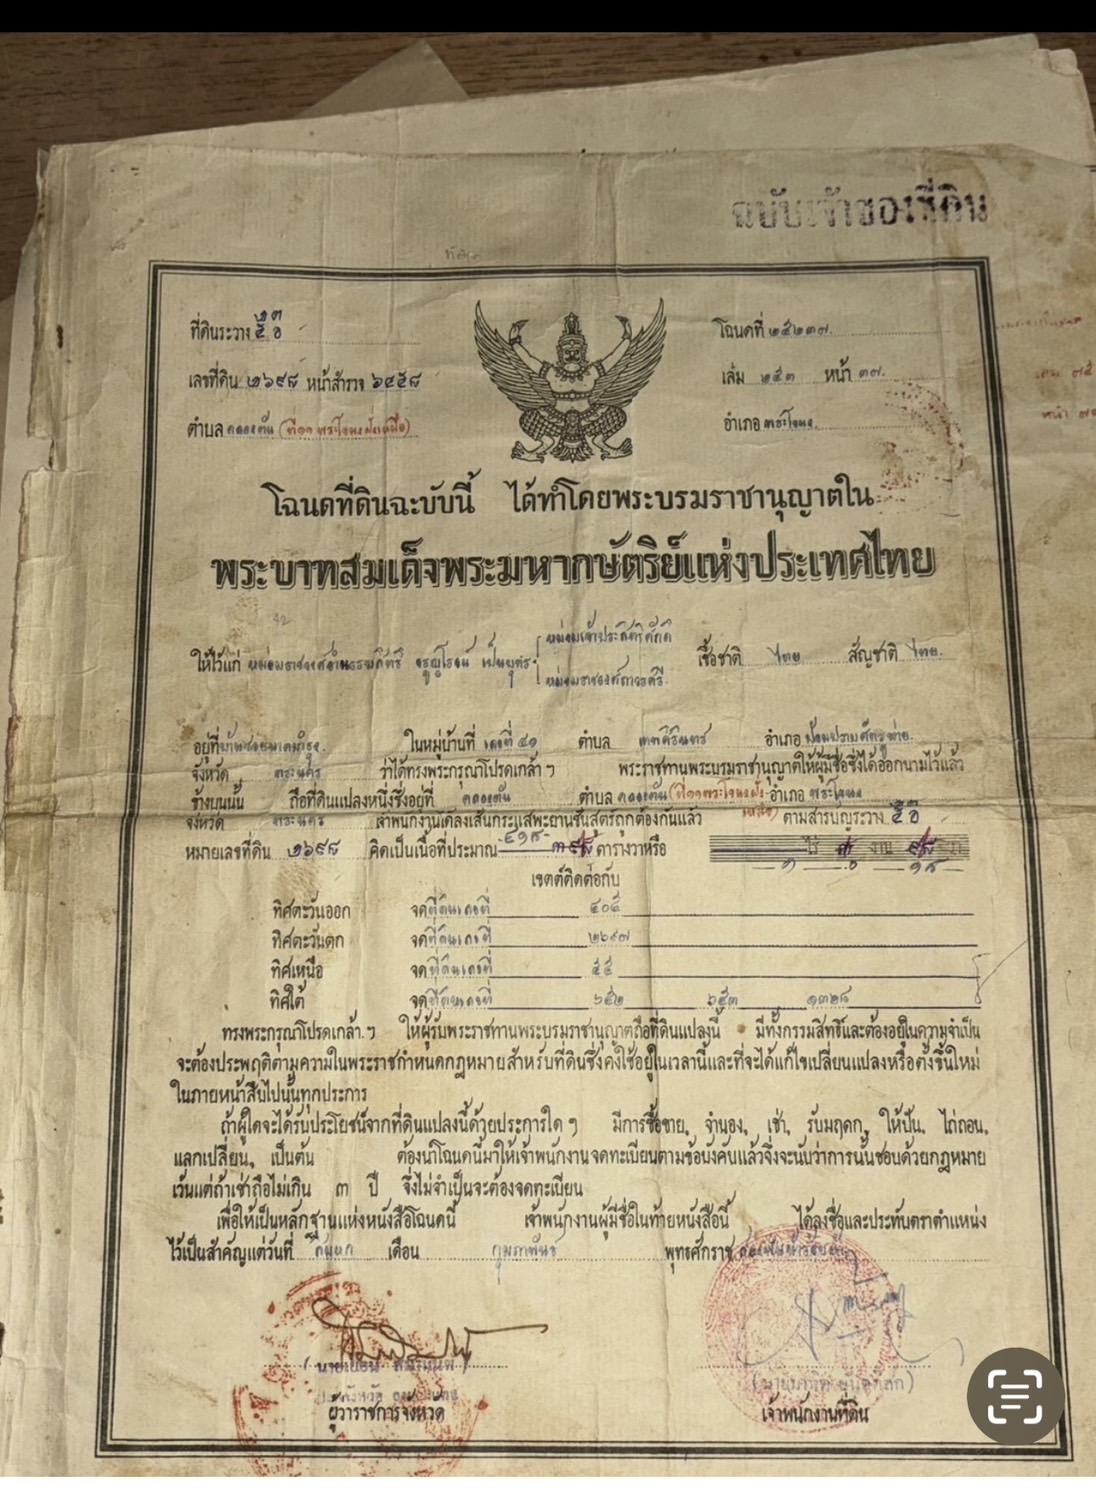 ฉบับเจ้าของที่ดิน
ที่ดินระวาง ๕ ๖
๒๓
โฉนดที่ ๒๕๒๓๗
เลขที่ดิน ๒๖๙๘ หน้าสำรวจ ๖๔๕๘
เล่ม ๒๕๓ หน้า ๓๗
ตำบล คลองตัน (ที่ ๑๑ พระโขนงฝั่งเหนือ)
อำเภอ พระโขนง
โฉนดที่ดินฉะบับนี้ ได้ทำโดยพระบรมราชานุญาตใน
พระบาทสมเด็จพระมหากษัตริย์แห่งประเทศไทย
หม่อมเจ้าประสิตรีศักดิ
ให้ไว้แก่ หม่อมราชวงศ์ จรูญโรจน์ เป็นบุตร เชื้อชาติ ไทย สัญชาติ ไทย
หม่อมราชวงศ์ถาวรศรี
อยู่ที่ ในหมู่บ้านที่ เลขที่ ๔๑ ตำบล เทพศิรินทร์ อำเภอ ป้อมปราบศัตรูพ่าย
จังหวัด พระนคร ว่าได้ทรงพระกรุณาโปรดเกล้า ฯ พระราชทานพระบรมราชานุญาตให้ผู้มีชื่อซึ่งได้ออกนามไว้แล้ว
ข้างบนนั้น ถือที่ดินแปลงหนึ่งซึ่งอยู่ที่ คลองตัน ตำบล คลองตัน (ที่ ๑๑ พระโขนงฝั่ง อำเภอ พระโขนง
จังหวัด พระนคร เจ้าพนักงานได้ลงเส้นกระแสพะยานชันสูตรถูกต้องกันแล้ว เหนือ) ตามสารบบระวาง ๕ ๖
หมายเลขที่ดิน ๒๖๙๘ คิดเป็นเนื้อที่ประมาณ ๔๑๘ ตารางวาหรือ ไร่ งาน วา
๑ ๐ ๑๘
เขตต์ติดต่อกับ
ทิศตะวันออก จดที่ดินเลขที่ ๔๐๕
ทิศตะวันตก จดที่ดินเลขที่ ๒๖๙๗
ทิศเหนือ จดที่ดินเลขที่ ๕๕
ทิศใต้ จดที่ดินเลขที่ ๖๕๒ ๖๕๓ ๑๓๒๘
ทรงพระกรุณาโปรดเกล้า ฯ ให้ผู้รับพระราชทานพระบรมราชานุญาตถือที่ดินแปลงนี้ มีทั้งกรรมสิทธิ์และต้องอยู่ในความจำเป็น
จะต้องประพฤติตามความในพระราชกำหนดกฎหมายสำหรับที่ดินซึ่งคงใช้อยู่ในเวลานี้และที่จะได้แก้ไขเปลี่ยนแปลงหรือตั้งขึ้นใหม่
ในภายหน้าสืบไปนั้นทุกประการ
ถ้าผู้ใดจะได้รับประโยชน์จากที่ดินแปลงนี้ด้วยประการใด ๆ มีการซื้อขาย, จำนอง, เช่า, รับมฤดก, ให้ปัน, ไถ่ถอน,
แลกเปลี่ยน, เป็นต้น ต้องนำโฉนดนี้มาให้เจ้าพนักงานจดทะเบียนตามข้อบังคับแล้วจึ่งจะนับว่าการนั้นชอบด้วยกฎหมาย
เว้นแต่ถ้าเช่าถือไม่เกิน ๓ ปี จึ่งไม่จำเป็นจะต้องจดทะเบียน
เพื่อให้เป็นหลักฐานแห่งหนังสือโฉนดนี้ เจ้าพนักงานผู้มีชื่อในท้ายหนังสือนี้ ได้ลงชื่อและประทับตราตำแหน่ง
ไว้เป็นสำคัญแต่วันที่ เดือน กุมภาพันธ์ พุทธศักราช
ผู้ว่าราชการจังหวัด
เจ้าพนักงานที่ดิน